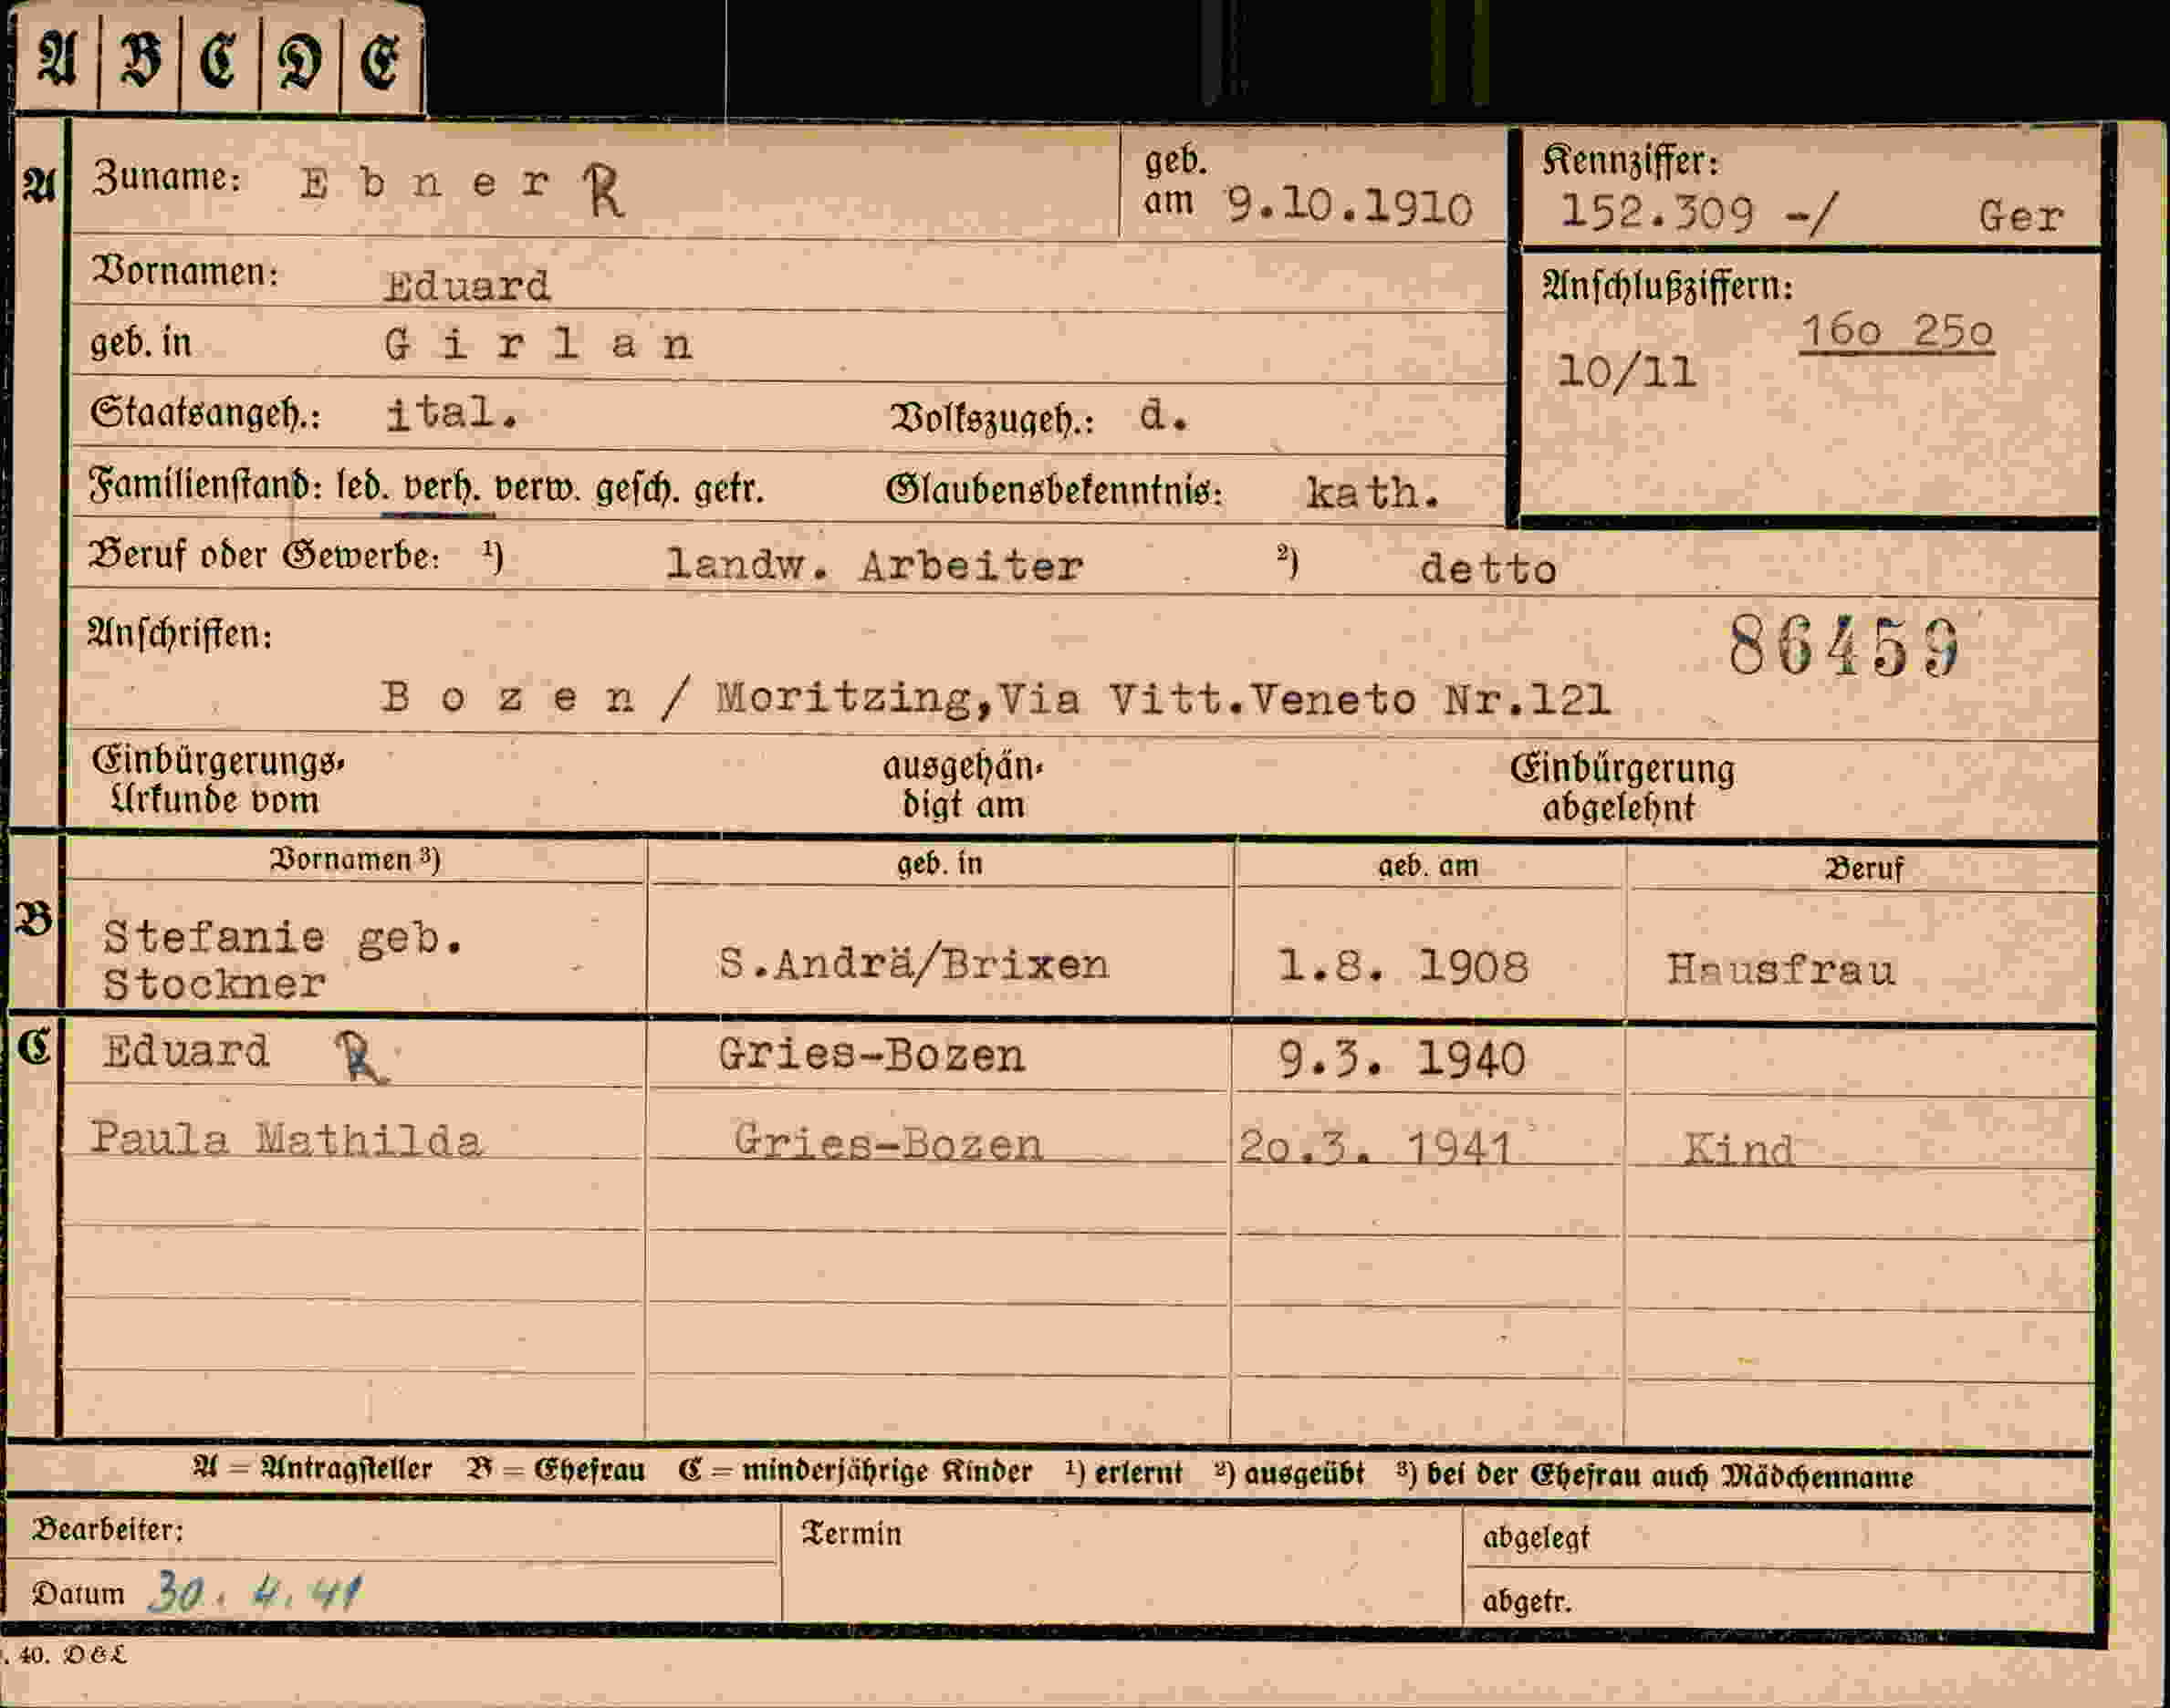 A B C D E
A Zuname: E b n e r R geb. am 9.10.1910 Kennziffer: 152.309 -/ Ger
Vornamen: Eduard
Anschlußziffern: 160 250
10/11
geb. in G i r l a n
Staatsangeh.: ital. Volkszugeh.: d.
Familienstand: led. verh. verw. gesch. getr. Glaubensbekenntnis: kath.
Beruf oder Gewerbe: ¹) landw. Arbeiter ²) detto
Anschriften: 86459
B o z e n / Moritzing,Via Vitt.Veneto Nr.121
Einbürgerungs- ausgehän- Einbürgerung
Urkunde vom digt am abgelehnt
Vornamen ³) geb. in geb. am Beruf
B Stefanie geb.
Stockner S.Andrä/Brixen 1.8. 1908 Hausfrau
C Eduard R Gries-Bozen 9.3. 1940
Paula Mathilda Gries-Bozen 2o.3. 1941 Kind
A = Antragsteller B = Ehefrau C = minderjährige Kinder ¹) erlernt ²) ausgeübt ³) bei der Ehefrau auch Mädchenname
Bearbeiter: Termin abgelegt
Datum 30. 4. 41 abgetr.
. 40. D & L